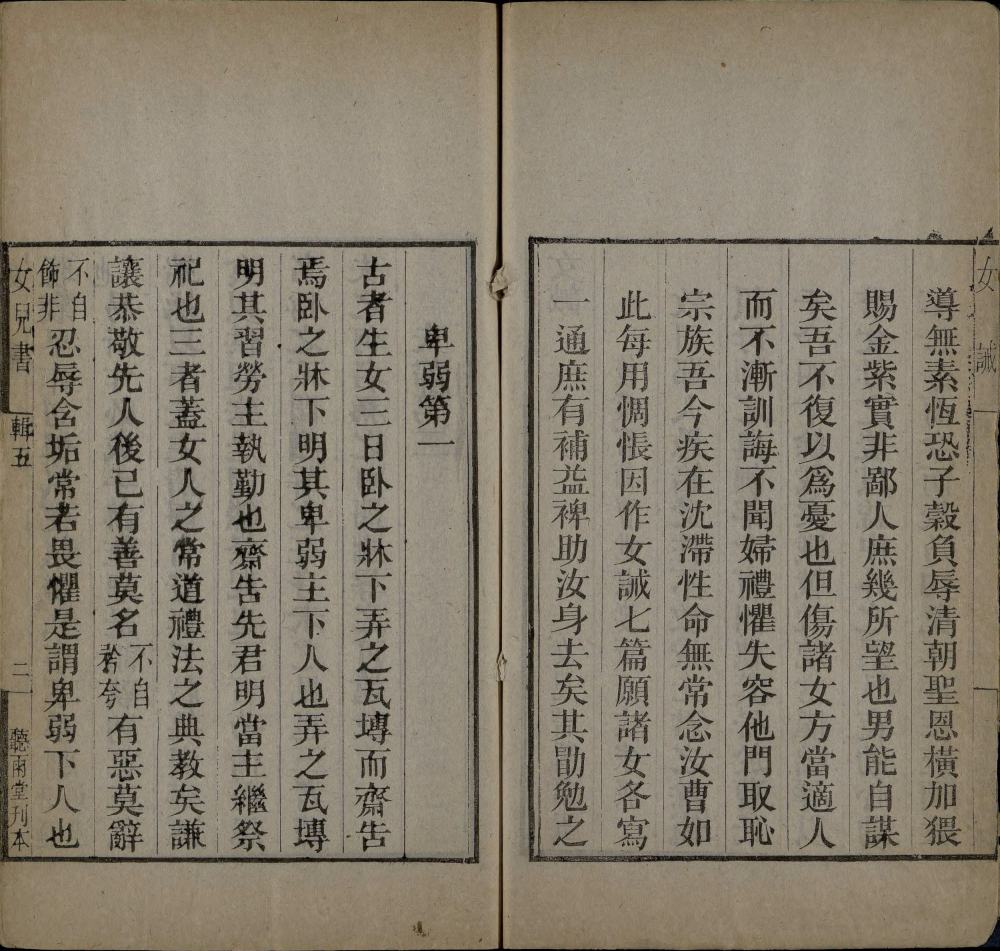 女誡
導無素恆恐子穀負辱清朝聖恩橫加猥
賜金紫實非鄙人庶幾所望也男能自謀
矣吾不復以爲憂也但傷諸女方當適人
而不漸訓誨不聞婦禮懼失容他門取恥
宗族吾今疾在沈滯性命無常念汝曹如
此每用惆悵因作女誡七篇願諸女各寫
一通庶有補益裨助汝身去矣其勖勉之
卑弱第一
古者生女三日卧之牀下弄之瓦塼而齋告
焉卧之牀下明其卑弱主下人也弄之瓦塼
明其習勞主執勤也齋告先君明當主繼祭
祀也三者蓋女人之常道禮法之典教矣謙
讓恭敬先人後已有善莫名不自矜夸有惡莫辭
不自飾非忍辱含垢常若畏懼是謂卑弱下人也
女兒書 輯五 二 聽雨堂刊本